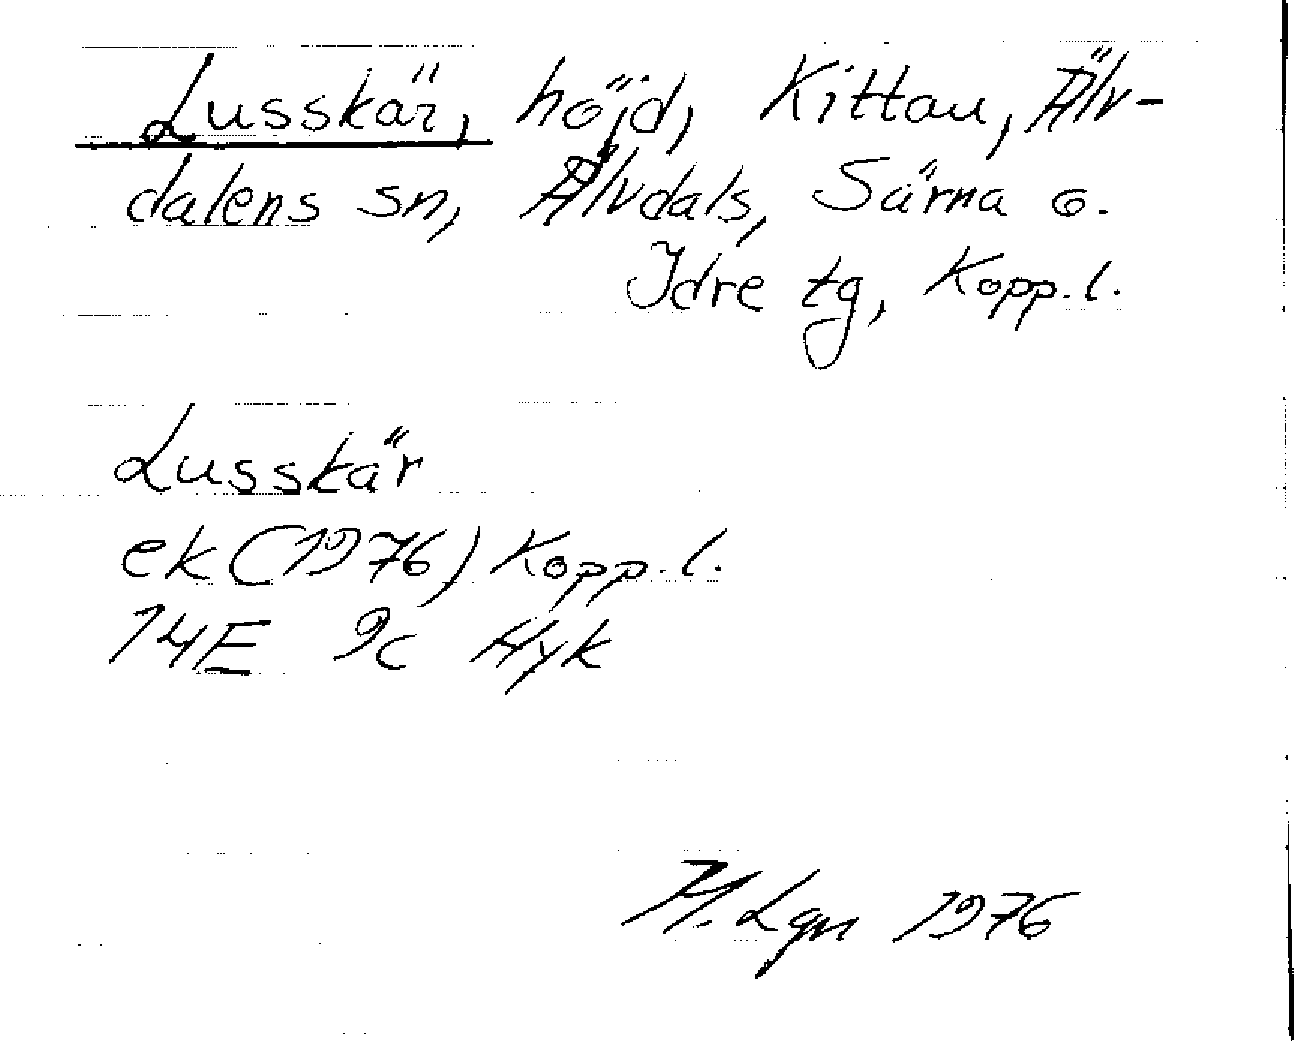 Lusskär, höjd, Kittau, Älv-
dalens sn, Älvdals, Särna o.
Idre tg, Kopp. l.
Lusskär
ek (1976) Kopp. l.
14E 9c Hyk
H. Lgn 1976